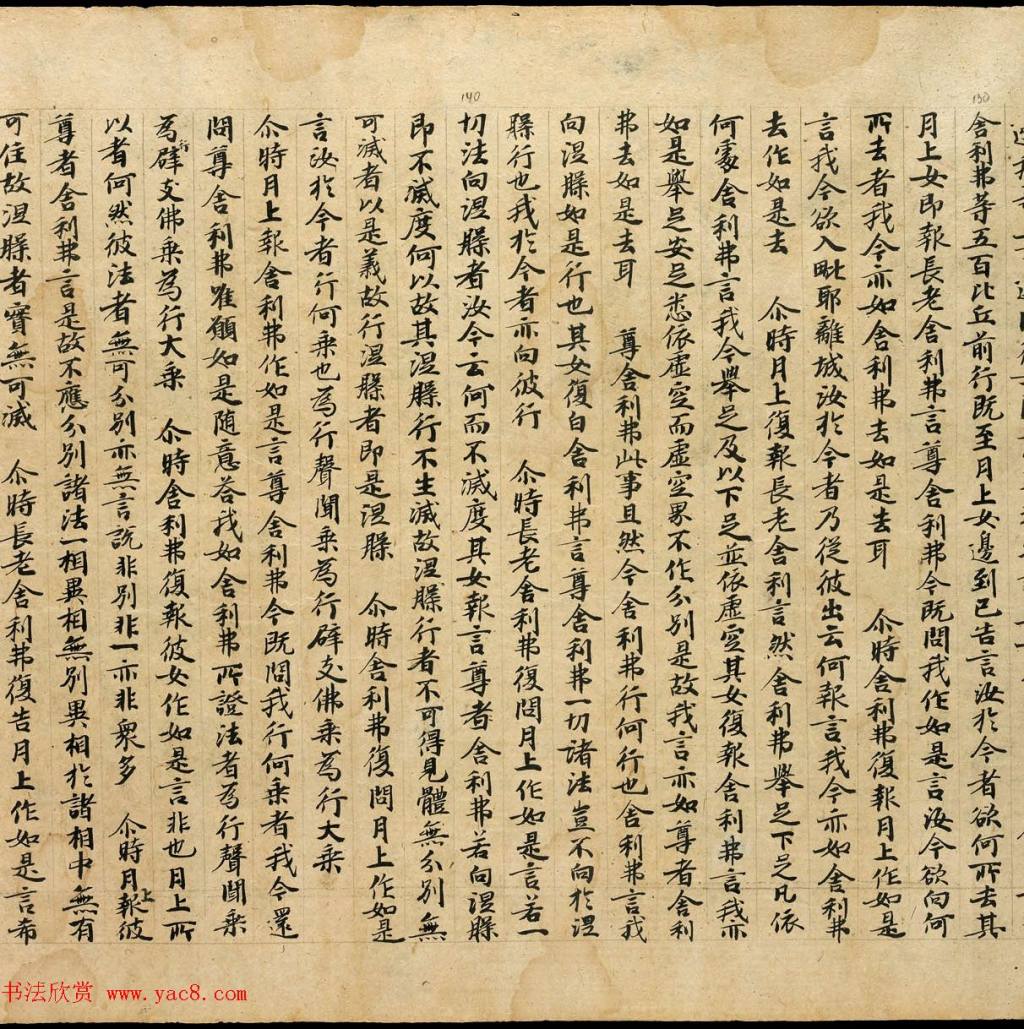 舍利弗等五百比丘前行既至月上女邊到已告言汝於今者欲何所去其
月上女即報長老舍利弗言尊舍利弗今既問我作如是言汝今欲向何
所去者我今亦如舍利弗去如是去耳　尒時舍利弗復報月上作如是
言我今欲入毗耶離城汝於今者乃從彼出云何報言我今亦如舍利弗
去作如是去　尒時月上復報長老舍利言然舍利弗舉足下足凡依
何處舍利弗言我今舉足及以下足並依虛空其女復報舍利弗言我亦
如是舉足安足悉依虛空而虛空界不作分別是故我言亦如尊者舍利
弗去如是去耳　尊舍利弗此事且然今舍利弗行何行也舍利弗言我
向涅槃如是行也其女復白舍利弗言尊舍利弗一切諸法豈不向於涅
槃行也我於今者亦向彼行　尒時長老舍利弗復問月上作如是言若一
切法向涅槃者汝今云何而不滅度其女報言尊者舍利弗若向涅槃
即不滅度何以故其涅槃行不生滅故涅槃行者不可得見體無分別無
可滅者以是義故行涅槃者即是涅槃　尒時舍利弗復問月上作如是
言汝於今者行何乘也為行聲聞乘為行辟支佛乘為行大乘
尒時月上報舍利弗作如是言尊舍利弗今既問我行何乘者我今還
問尊舍利弗唯願如是隨意荅我如舍利弗所證法者為行聲聞乘
為行辟支佛乘為行大乘　尒時舍利弗復報彼女作如是言非也月上所
以者何然彼法者無可分別亦無言說非別非一亦非眾多　尒時月上報彼
尊者舍利弗言是故不應分別諸法一相異相無別異相於諸相中無有
可住故涅槃者實無可滅　尒時長老舍利弗復告月上作如是言希
130
140
书法欣赏 www.yac8.com